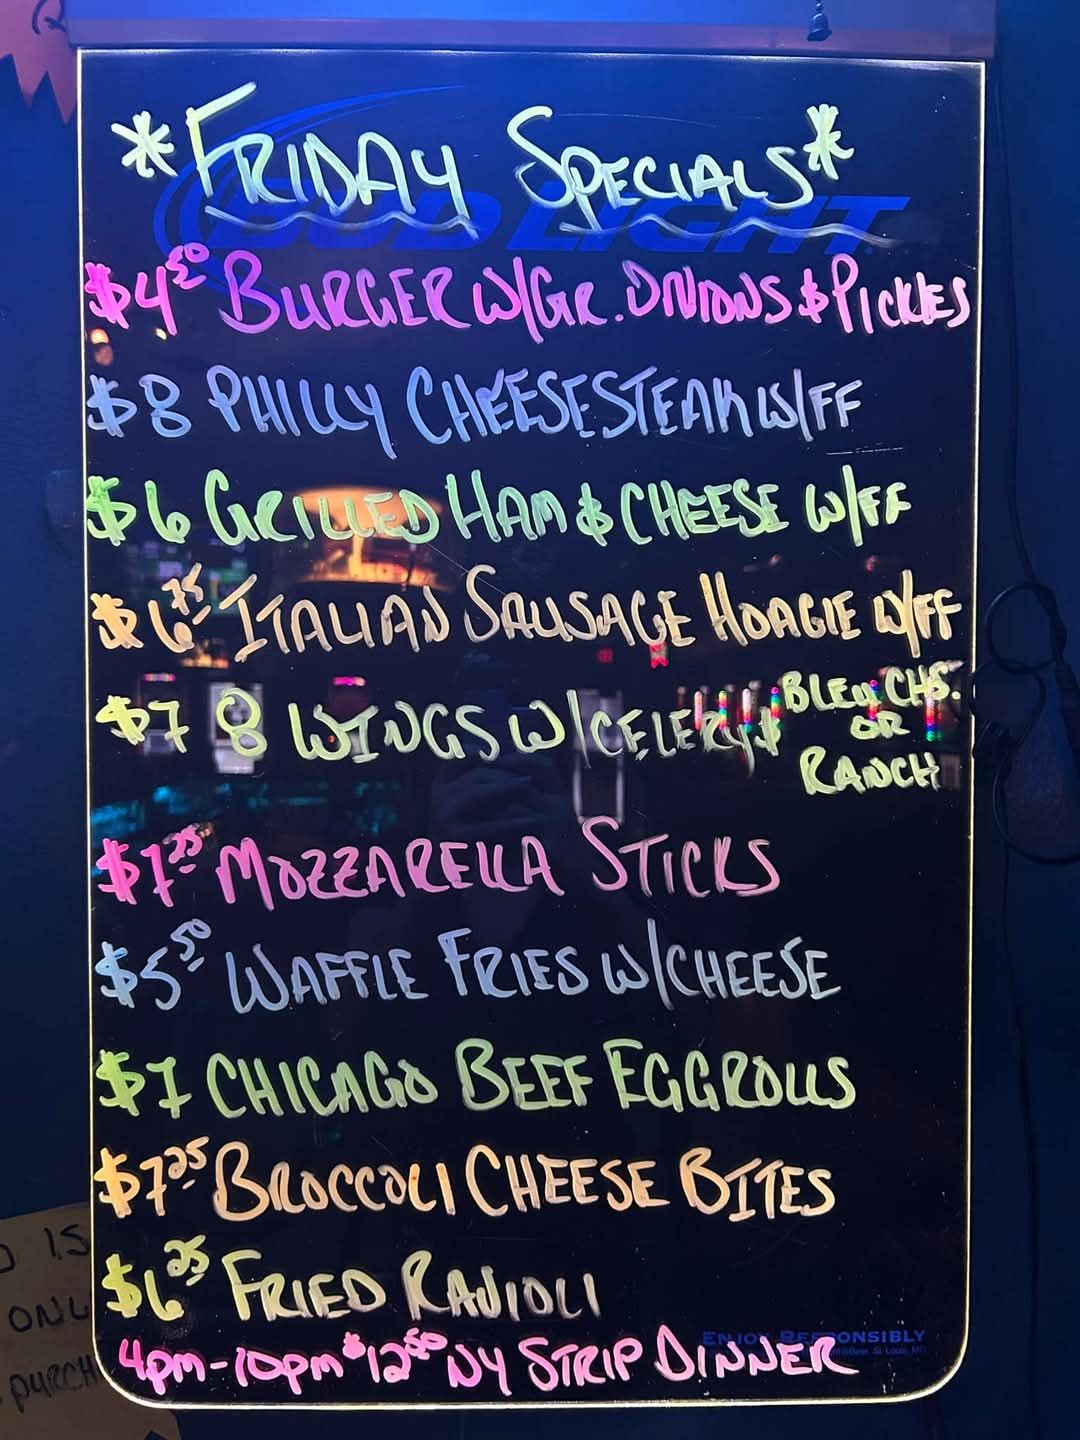 *FRIDAY SPECIALS*
BUD LIGHT
$4.50 BURGER W/GR. ONIONS & PICKLES
$8 PHILLY CHEESESTEAK W/FF
$6 GRILLED HAM & CHEESE W/FF
$6.75 ITALIAN SAUSAGE HOAGIE W/FF
$7 8 WINGS W/CELERY & BLEU CHS. OR RANCH
$7.25 MOZZARELLA STICKS
$5.50 WAFFLE FRIES W/CHEESE
$7 CHICAGO BEEF EGGROLLS
$7.25 BROCCOLI CHEESE BITES
$6.25 FRIED RAVIOLI
ENJOY RESPONSIBLY
St. Louis, MO
4pm-10pm $12.50 NY STRIP DINNER
15
ONL
PURCH